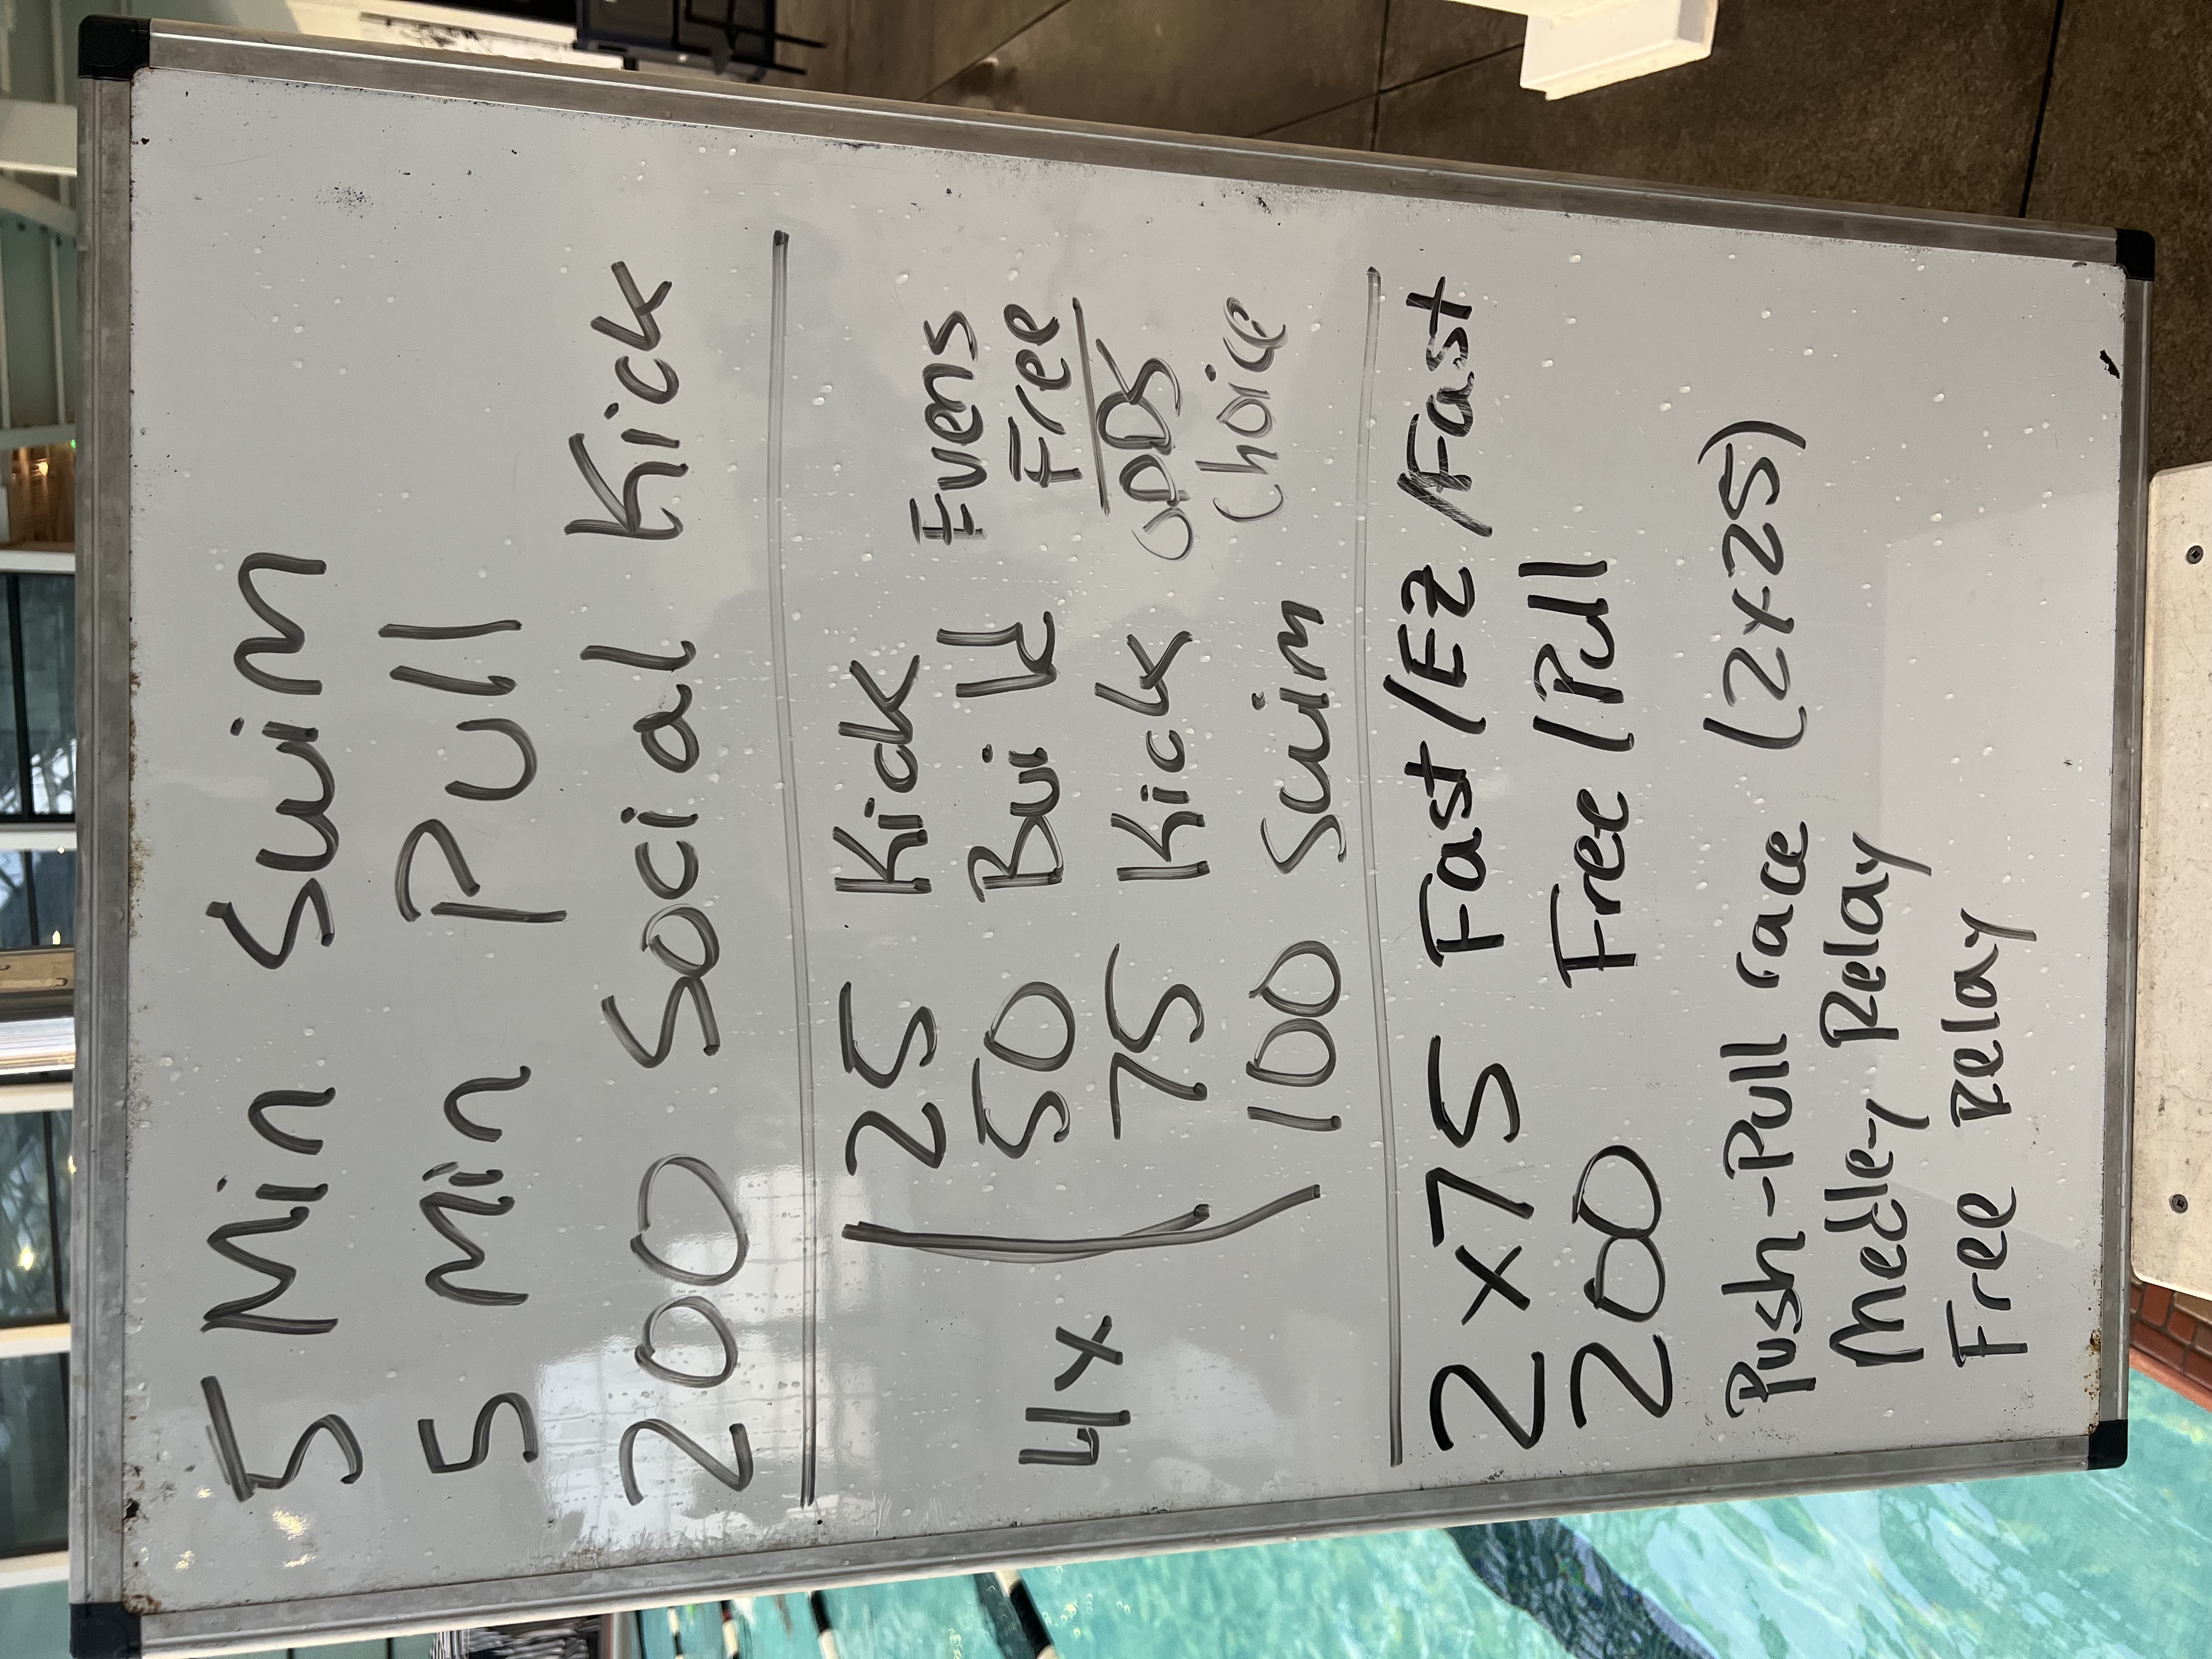 5 Min Swim
5 Min Pull
200 Social Kick
4x ( 25 Kick
50 Build
75 Kick
100 Swim
Evens
Free
ODDS
Choice
2x75 Fast/EZ/Fast
200 Free/Pull
Push-Pull race (2x25)
Medley Relay
Free Relay